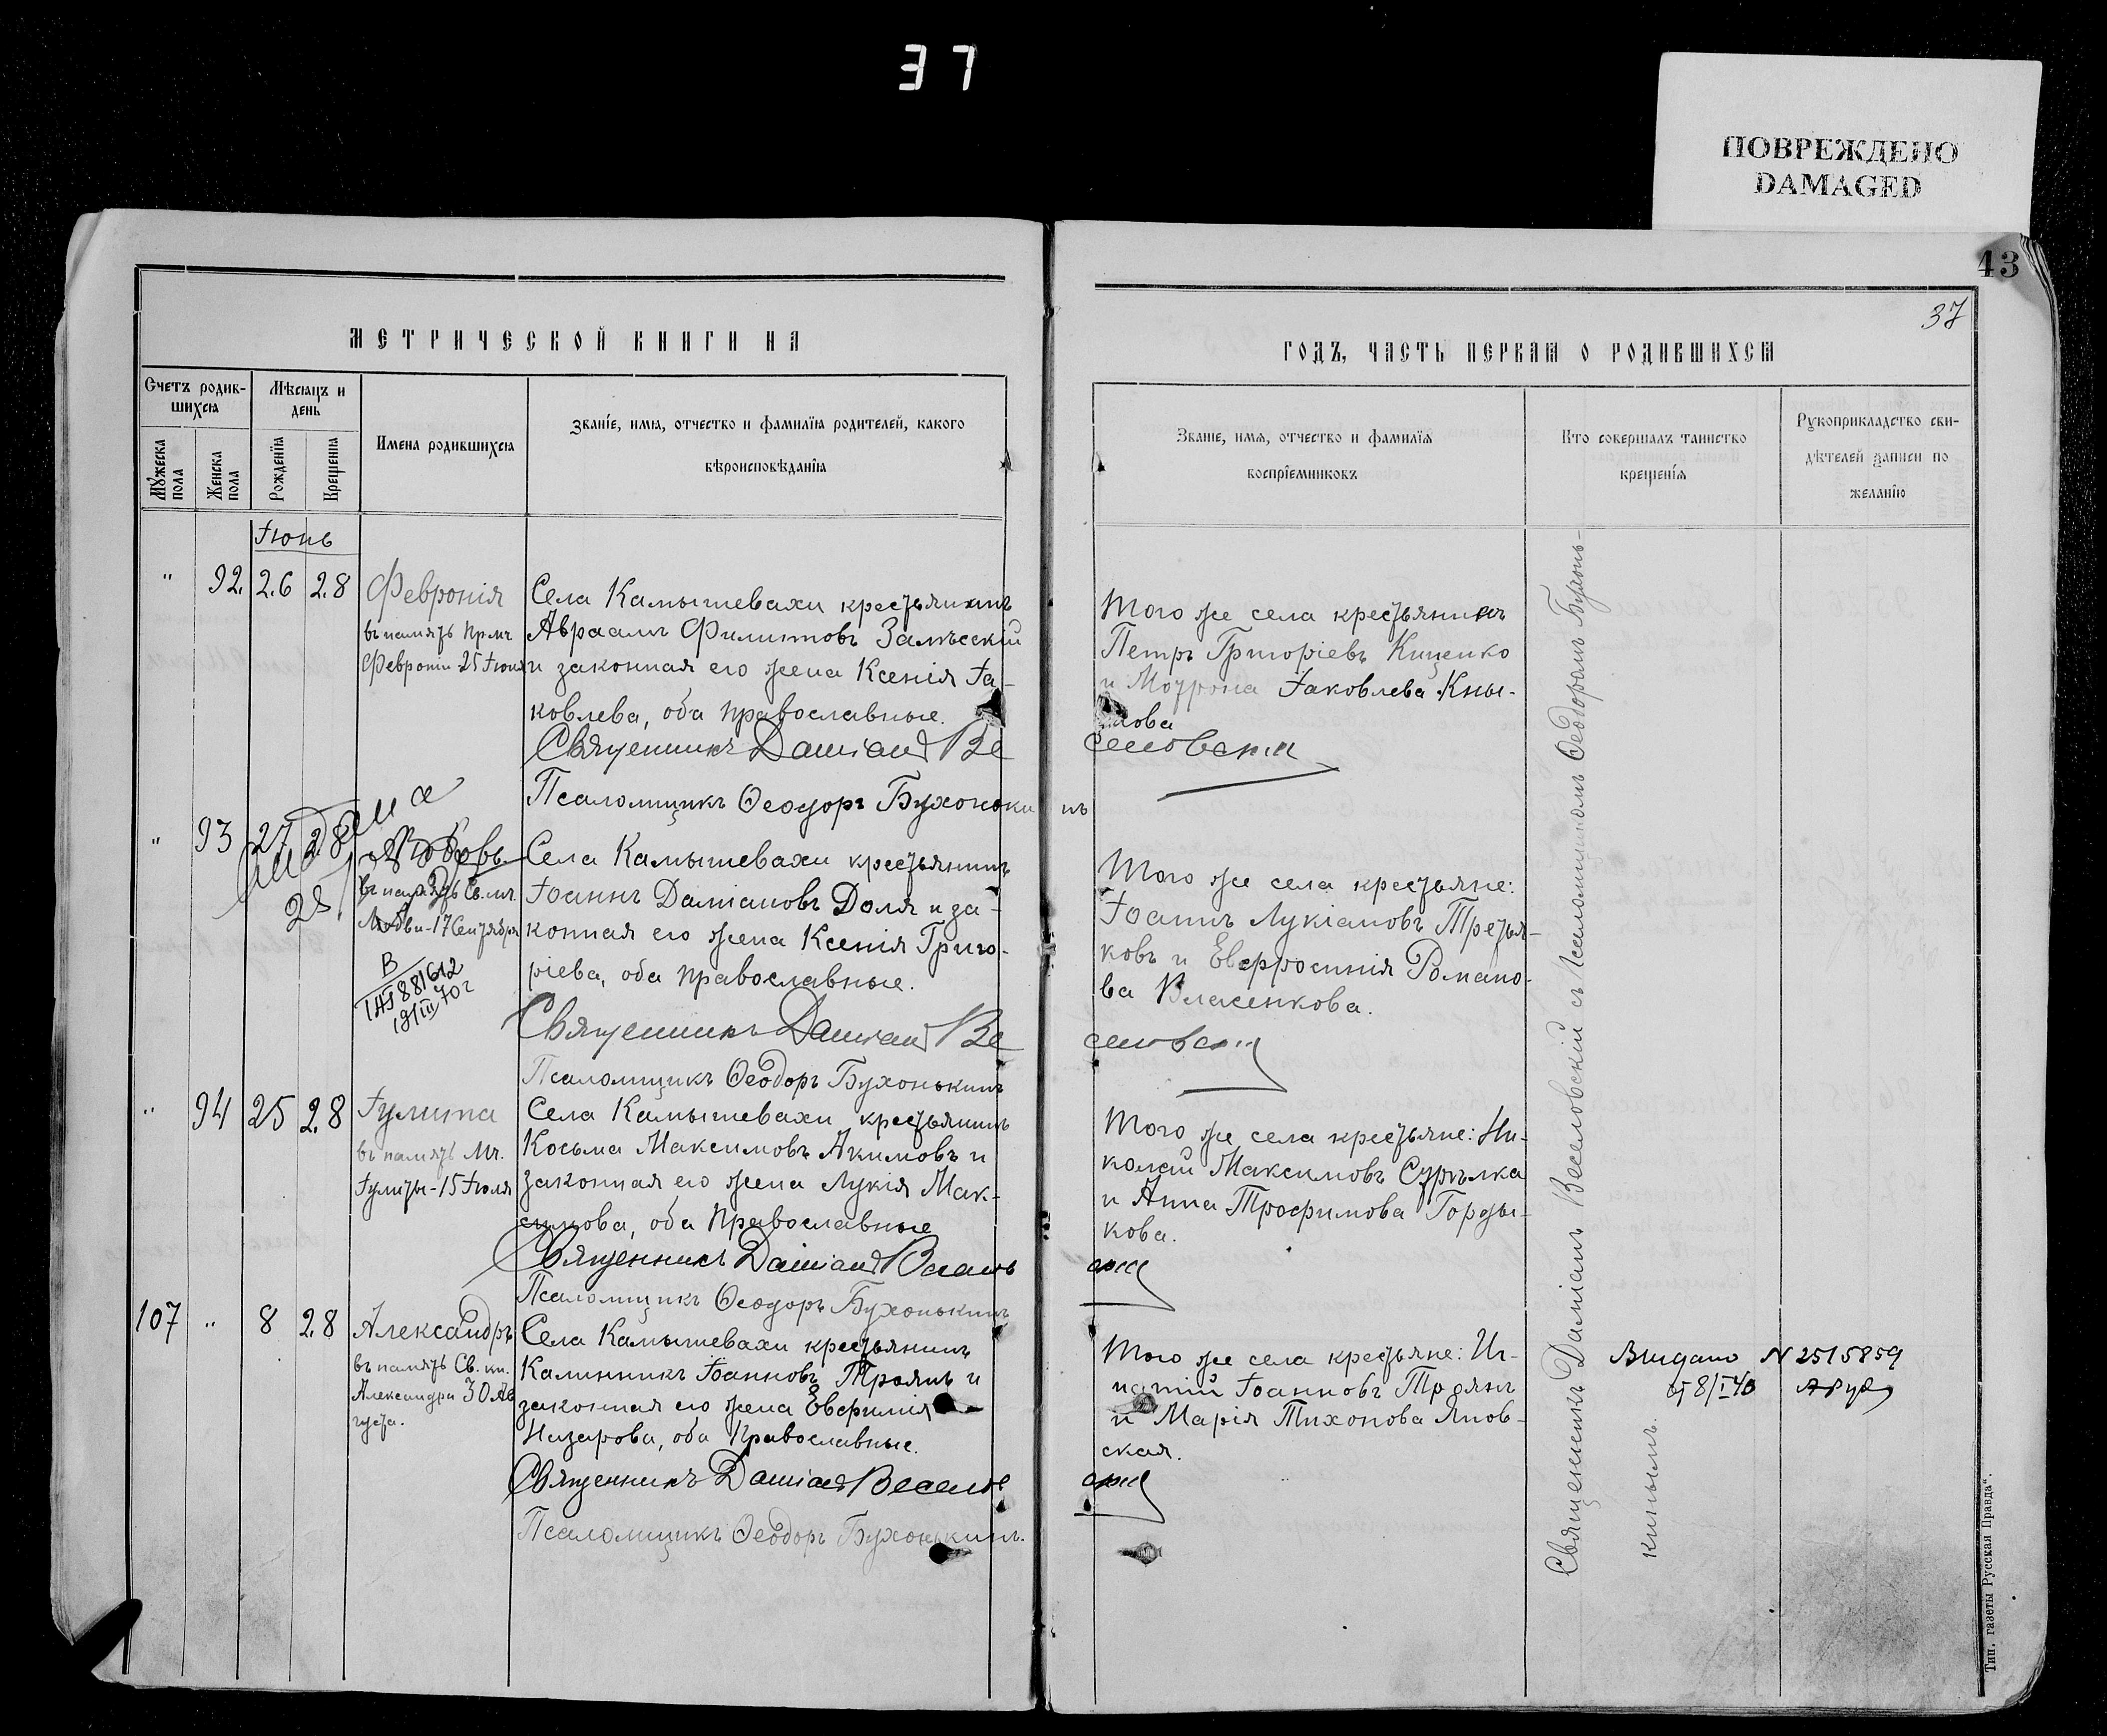 37
ПОВРЕЖДЕНО
DAMAGED
43
37
МЕТРИЧЕСКОЙ КНИГИ НА
ГОДЪ, ЧАСТЬ ПЕРВАЯ О РОДИВШИХСЯ
Счетъ родив-
шихся
Мѣсяцъ и
день
Мужеска
пола
Женска
пола
Рожденїя
Крещенїя
Имена родившихся
Званїе, имя, отчество и фамилїя родителей, какого
вѣроисповѣданїя
Званїе, имя, отчество и фамилїя
воспрїемниковъ
Кто совершалъ таинство
крещенїя
Рукоприкладство сви-
дѣтелей записи по
желанїю
Іюнь
" 92. 26 28
Февронія
въ память Прмч.
Февроніи 25 Іюня
Села Камышевахи крестьянинъ
Авраамъ Филиповъ Залѣсскій
и законная его жена Ксенія Іа-
ковлева, оба православные.
Священникъ Даміанъ Ве
Псаломщикъ Ѳеодоръ Бухонькинъ
Того же села крестьянинъ
Петръ Григоріевъ Киценко
и Мотрона Іаковлева Кны-
шова
селовскій
" 93 27 28
Любовь
въ память Св. мч.
Любви - 17 Сентября
В
181612
19/III 70 г
Села Камышевахи крестьянинъ
Іоаннъ Даміановъ Доля и за-
конная его жена Ксенія Григо-
ріева, оба православные.
Священникъ Даміанъ Ве
Псаломщикъ Ѳеодоръ Бухонькинъ
Того же села крестьяне:
Іоаннъ Лукіановъ Третья-
ковъ и Евфросинія Романо-
ва Власенкова.
селовскій
" 94 25 28
Іулита
въ память Мч.
Іулиты - 15 Іюля
Села Камышевахи крестьянинъ
Косьма Максимовъ Акимовъ и
законная его жена Лукія Мак-
симова, оба православные
Священникъ Даміанъ Веселов
Псаломщикъ Ѳеодоръ Бухонькинъ
Того же села крестьяне: Ни-
колай Максимовъ Сурѣлка
и Анна Трофимова Горды-
кова.
скій
107 " 8 28
Александръ
въ память Св. кн.
Александра 30 Ав
густа.
Села Камышевахи крестьянинъ
Калинникъ Іоанновъ Троянъ и
законная его жена Евфимія
Назарова, оба православные.
Священникъ Даміанъ Веселов
Псаломщикъ Ѳеодоръ Бухонькинъ.
Того же села крестьяне: Иг-
натій Іоанновъ Троянъ
и Марія Тихонова Янов-
ская.
скій
Священникъ Даміанъ Веселовскій съ Псаломщикомъ Ѳеодоромъ Бухонь-
кинымъ.
Видано N 2515859
от 8/I 40
Тип. газеты „Русская Правда“.